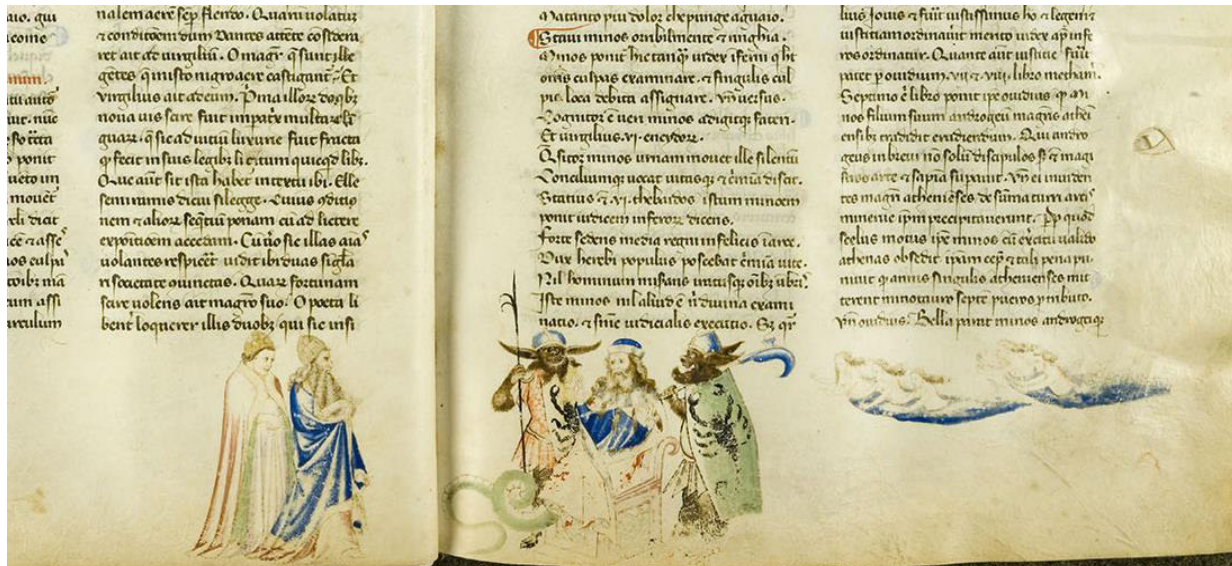 aio. qui
come
ponit
mouet
dicit
culpa
assi
culum
nalem aere semper flendo. Quam uolatum
& conditoem dum Dantes attete cosidera
ret ait ad uirgiliu. O magr qi sunt ille
getes q inisto nigro aere castigant. Et
virgilius ait ad eum. Prima illor de qbz
noua uis scire fuit impatrix multar
guar. que sic ad uitiu luxurie fuit fracta
q fecit in suis legibz licitum quicqd libz.
Que aut sit ista habet in textu ibi. Elle
semiramis di cui si legge. Cuius oditio
nem & alior sequtiu ponam cu ad lictere
expoitioem accedam. Cu uo sic illas aias
volantes respicet uidit ibi duas sigla
ri societate iunctas. Quar fortunam
scire volens ait magro suo. O poeta li
bent loquerer illis duobz qui sic insi
Matanto piu dolor che punge aguaio.
Staui minos orribilmente & ringhia.
Minos ponit hic tanqi iudex iferni qi ht
oms culpas examinare. & singulis cul
pis loca debita assignare. Vn versus.
Cognitor e ven minos adigitqz fateri.
Et uirgilius .vi. eneydor.
Qsitor minos urnam mouet ille silentu
Conciliumqz uocat uitasqz & cimia discit.
Statius & .vi. thebaidos istum minoem
ponit iudicem inferor dicens.
Forte sedens media regni infelicis iarce.
Dux herebi populus poscebat cimia uite.
Nil hominum misrans iratusqz oibz ubri.
Iste minos nil aliud e n diuina exami
natio. & sinie iudicialis executio. Sz qr
lius Jouis & fuit iustissimus ho & legem &
iustitiam ordinauit merito iudex ap infe
ros ordinatur. Quante aut iustitie fuit
patet p ouidium .vii. & viii. libro metham.
Septimo e libro ponit ipe ouidius qi mi
nos filium suum androgeu magris athei
ensibz tradidit erudiendum. Qui andro
geus in breui no solu discipulos sz & magi
stros arte & sapia supauit. Vn ei inuiden
tes magri athenieses de suma turri arcis
minerue ipm precipitauerunt. Pp quod
scelus motus ipe minos cu exercitu ualido
athenas obsedit ipam cepit & tali pena pu
niuit qi annis singulis athenienses mit
terent minotauro septe pueros p tributo.
Vn ouidius. Bella parat minos androgeiqz